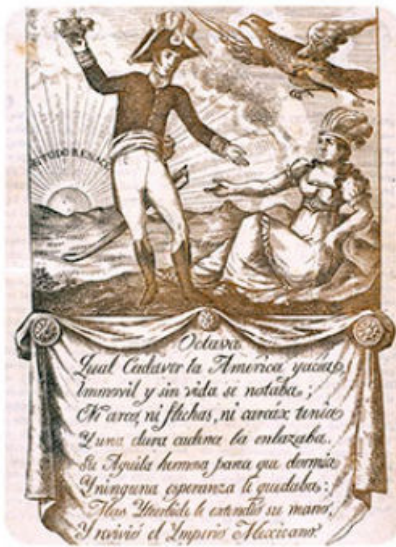 TODO RENACE
Octava
Qual Cadaver la America yacia,
Immovil y sin vida se notaba;
Ni arco, ni flechas, ni carcax tenia
Y una dura cadena la enlazaba.
Su Aguila hermosa parece que dormia
Y ninguna esperanza le quedaba:
Mas Yturbide le extendió su mano,
Y revivió el Ymperio Mexicano.